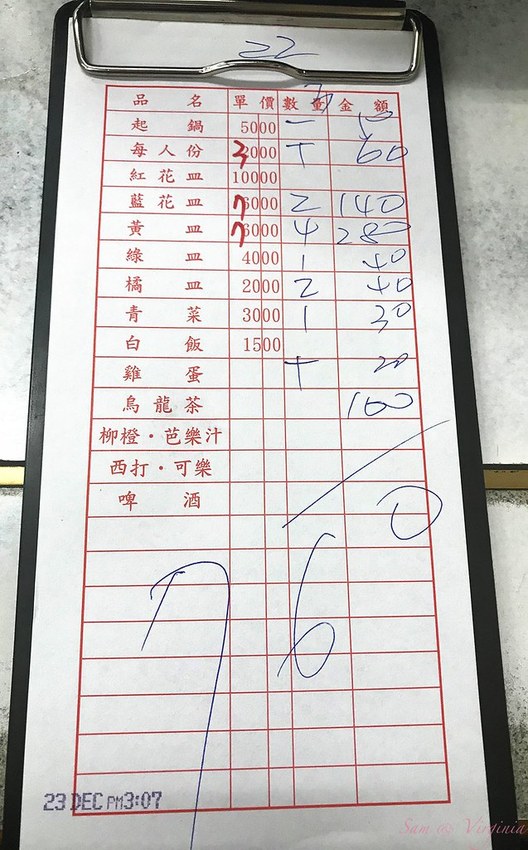 22
品 名 單價 數量 金 額
起 鍋 5000 一
每人份 3000 丅 60
紅花皿 10000
藍花皿 7000 2 140
黃 皿 7000 4 280
綠 皿 4000 1 40
橘 皿 2000 2 40
青 菜 3000 1 30
白 飯 1500
雞 蛋 丅 20
烏龍茶 100
柳橙・芭樂汁
西打・可樂
啤 酒
760
23 DEC PM3:07
Sam Virginia